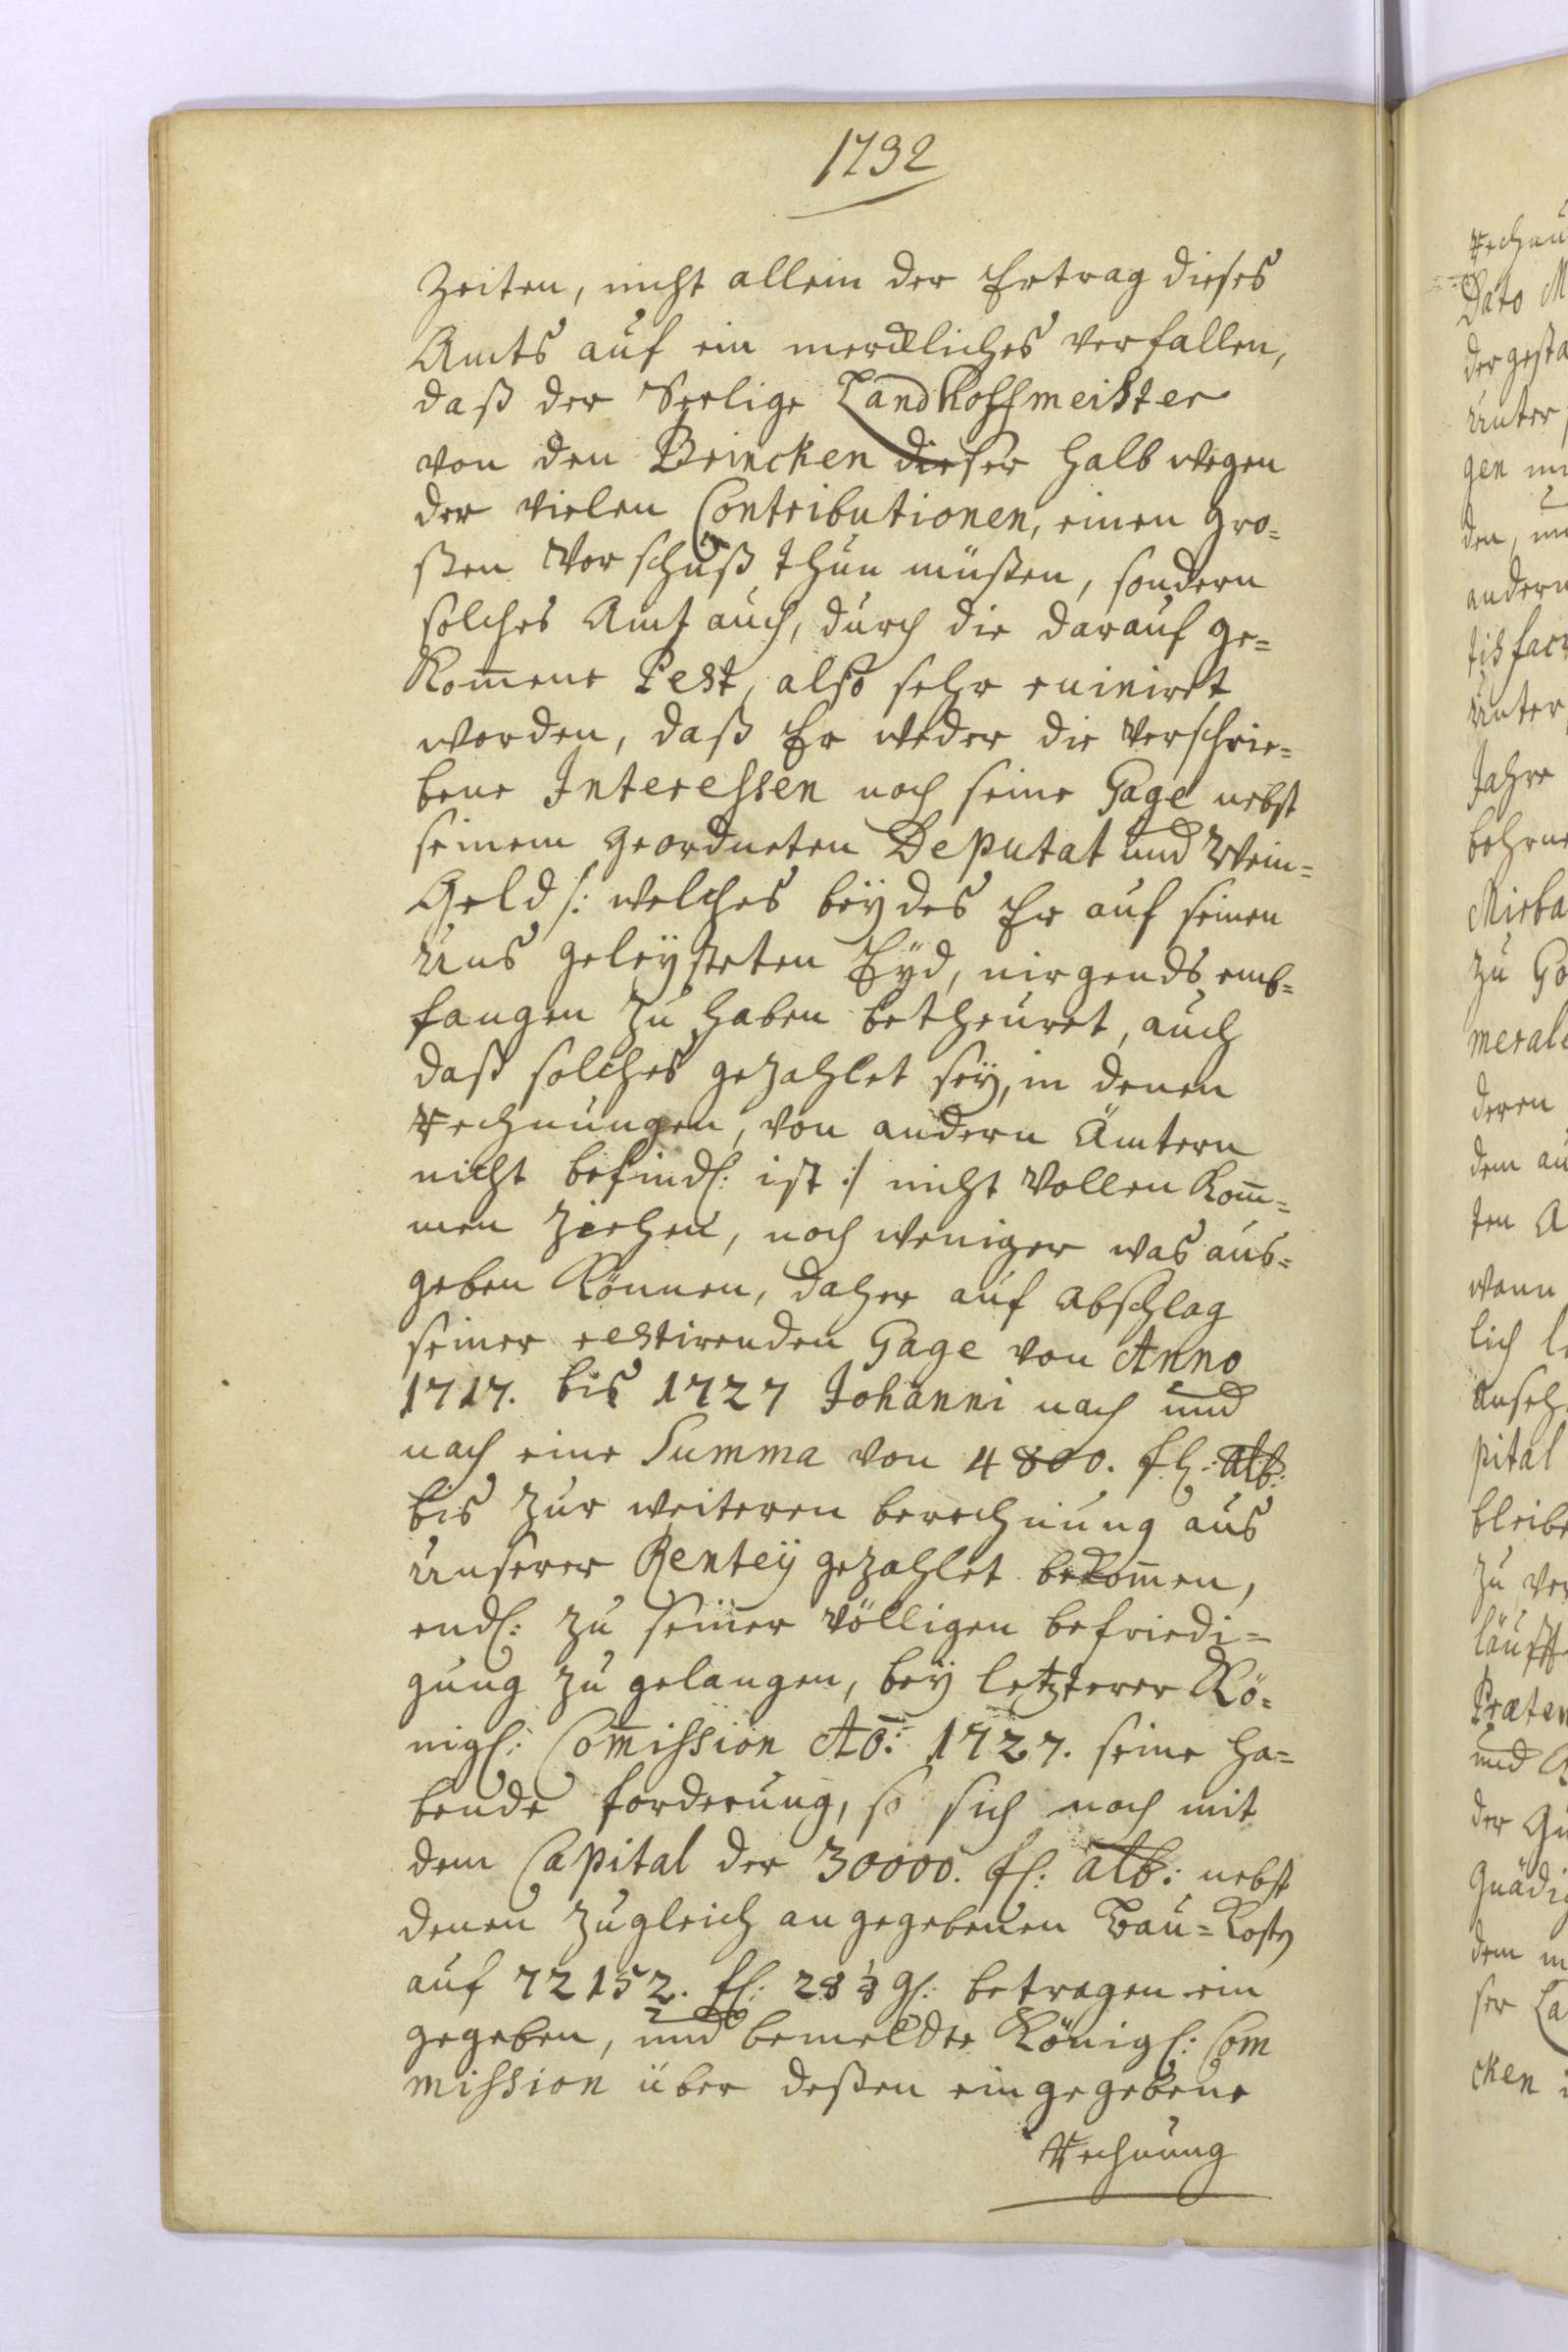 1732
Zeiten, nicht allein der Ertrag dieses
Amts auf ein merckliches verfallen,
daß der Seelige Landhoffmeister
von den Brincken dieser halb wegen
der vielen Contributionen, einen gro=
ßen Vorschuß thun müßen, sondern
solches Amt auch, durch die darauf ge=
kom̄ene Pest, also sehr ruiniret
worden, daß Er weder die verschrie=
bene Interessen noch seine Gage nebst
seinem geordneten Deputat und Wein=
Geld /: welches beÿdes Er auf seinen
Uns geleÿsteten Eÿd, nirgends emp=
fangen zu haben betheuret, auch
daß solches gezahlet seÿ, in denen
Rechnungen, von andern Ämtern
nicht befindl: ist :/ nicht vollenkom̄=
men ziehen, noch weniger was aus=
geben können, daher auf abschlag
seiner restirenden Gage von Anno
1717. bis 1727 Johanni nach und
nach eine Summa von 4800. fl: alb:
bis zur weiteren berechnung aus
Unserer Renteÿ gezahlet bekom̄en,
endl: zu seiner völligen befriedi=
gung zu gelangen, beÿ letzterer Kö=
nigl: Com̄ission Ao: 1727. seine ha=
bende forderung, so sich noch mit
dem Capital der 30000. fl: alb: nebst
denen zugleich angegebenen Bau=Kosten
auf 72152. fl: 28⅓ gl: betragen ein
gegeben, und bemeldte Königl: Com
mission über deßen eingegebene
Rechnung
Rechnu
Dato M
dergesta
Unter
gen
den,
andern
tisfac
Unter
Jahre
Mirba
zu Go
merale
deren
dem au
ten A
wann
lich
anseh
pital
bleibe
zu ver
läufft
Præten
und
der
Gnädig
dem
ser La
cken